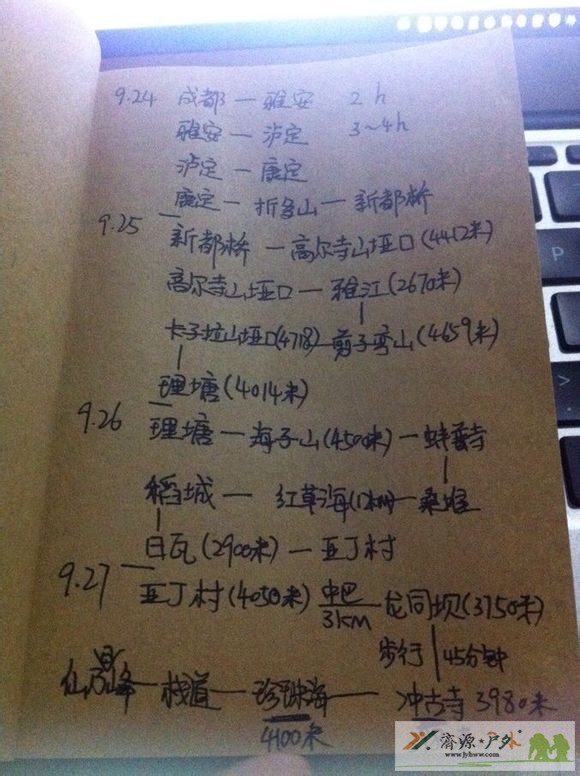 9.24 成都 — 雅安 2h
雅安 — 泸定 3~4h
泸定 — 康定
康定 — 折多山 — 新都桥
9.25 新都桥 — 高尔寺山垭口(4412米)
高尔寺山垭口 — 雅江(2670米)
卡子拉山垭口(4718) — 剪子弯山(4659米)
理塘(4014米)
9.26 理塘 — 海子山(4500米) — 蚌普寺
稻城 — 红草海 — 桑堆
日瓦(2900米) — 亚丁村
9.27 亚丁村(4050米) 中巴 3km 龙同坝(3750米)
步行 45分钟
仙乃日峰 — 栈道 — 珍珠海 — 冲古寺 3980米
4100米
济源·户外
www.jyhww.com